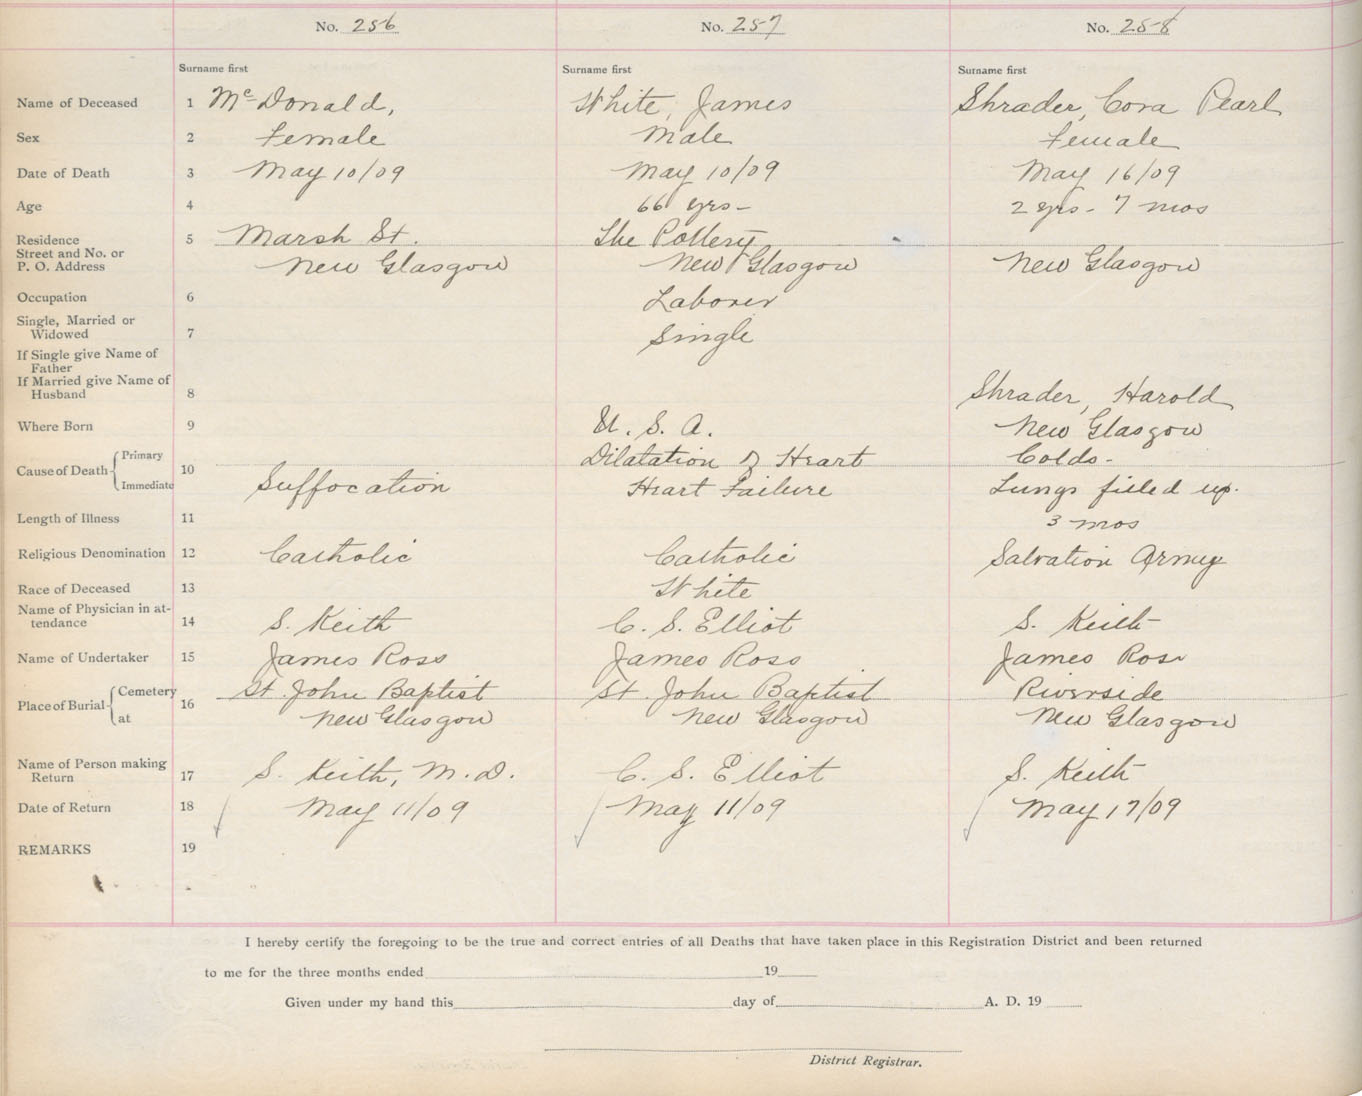 No. 256 No. 257 No. 258
Surname first Surname first Surname first
Name of Deceased 1 McDonald, White, James Shrader, Cora Pearl
Sex 2 Female Male Female
Date of Death 3 May 10/09 May 10/09 May 16/09
Age 4 66 yrs- 2 yrs- 7 mos
Residence 5 Marsh St. The Pottery
Street and No. or
P. O. Address New Glasgow New Glasgow New Glasgow
Occupation 6 Laborer
Single, Married or
Widowed 7 Single
If Single give Name of
Father
If Married give Name of
Husband 8 Shrader, Harold
Where Born 9 U. S. A. New Glasgow
Cause of Death Primary 10 Dilatation of Heart Colds-
Immediate Suffocation Heart Failure Lungs filled up.
Length of Illness 11 3 mos
Religious Denomination 12 Catholic Catholic Salvation Army
Race of Deceased 13 White
Name of Physician in at-
tendance 14 S. Keith C. S. Elliot S. Keith
Name of Undertaker 15 James Ross James Ross James Ross
Place of Burial Cemetery 16 St. John Baptist St. John Baptist Riverside
at New Glasgow New Glasgow New Glasgow
Name of Person making
Return 17 S. Keith, M.D. C. S. Elliot S. Keith
Date of Return 18 May 11/09 May 11/09 May 17/09
REMARKS 19
I hereby certify the foregoing to be the true and correct entries of all Deaths that have taken place in this Registration District and been returned
to me for the three months ended 19
Given under my hand this day of A. D. 19
District Registrar.